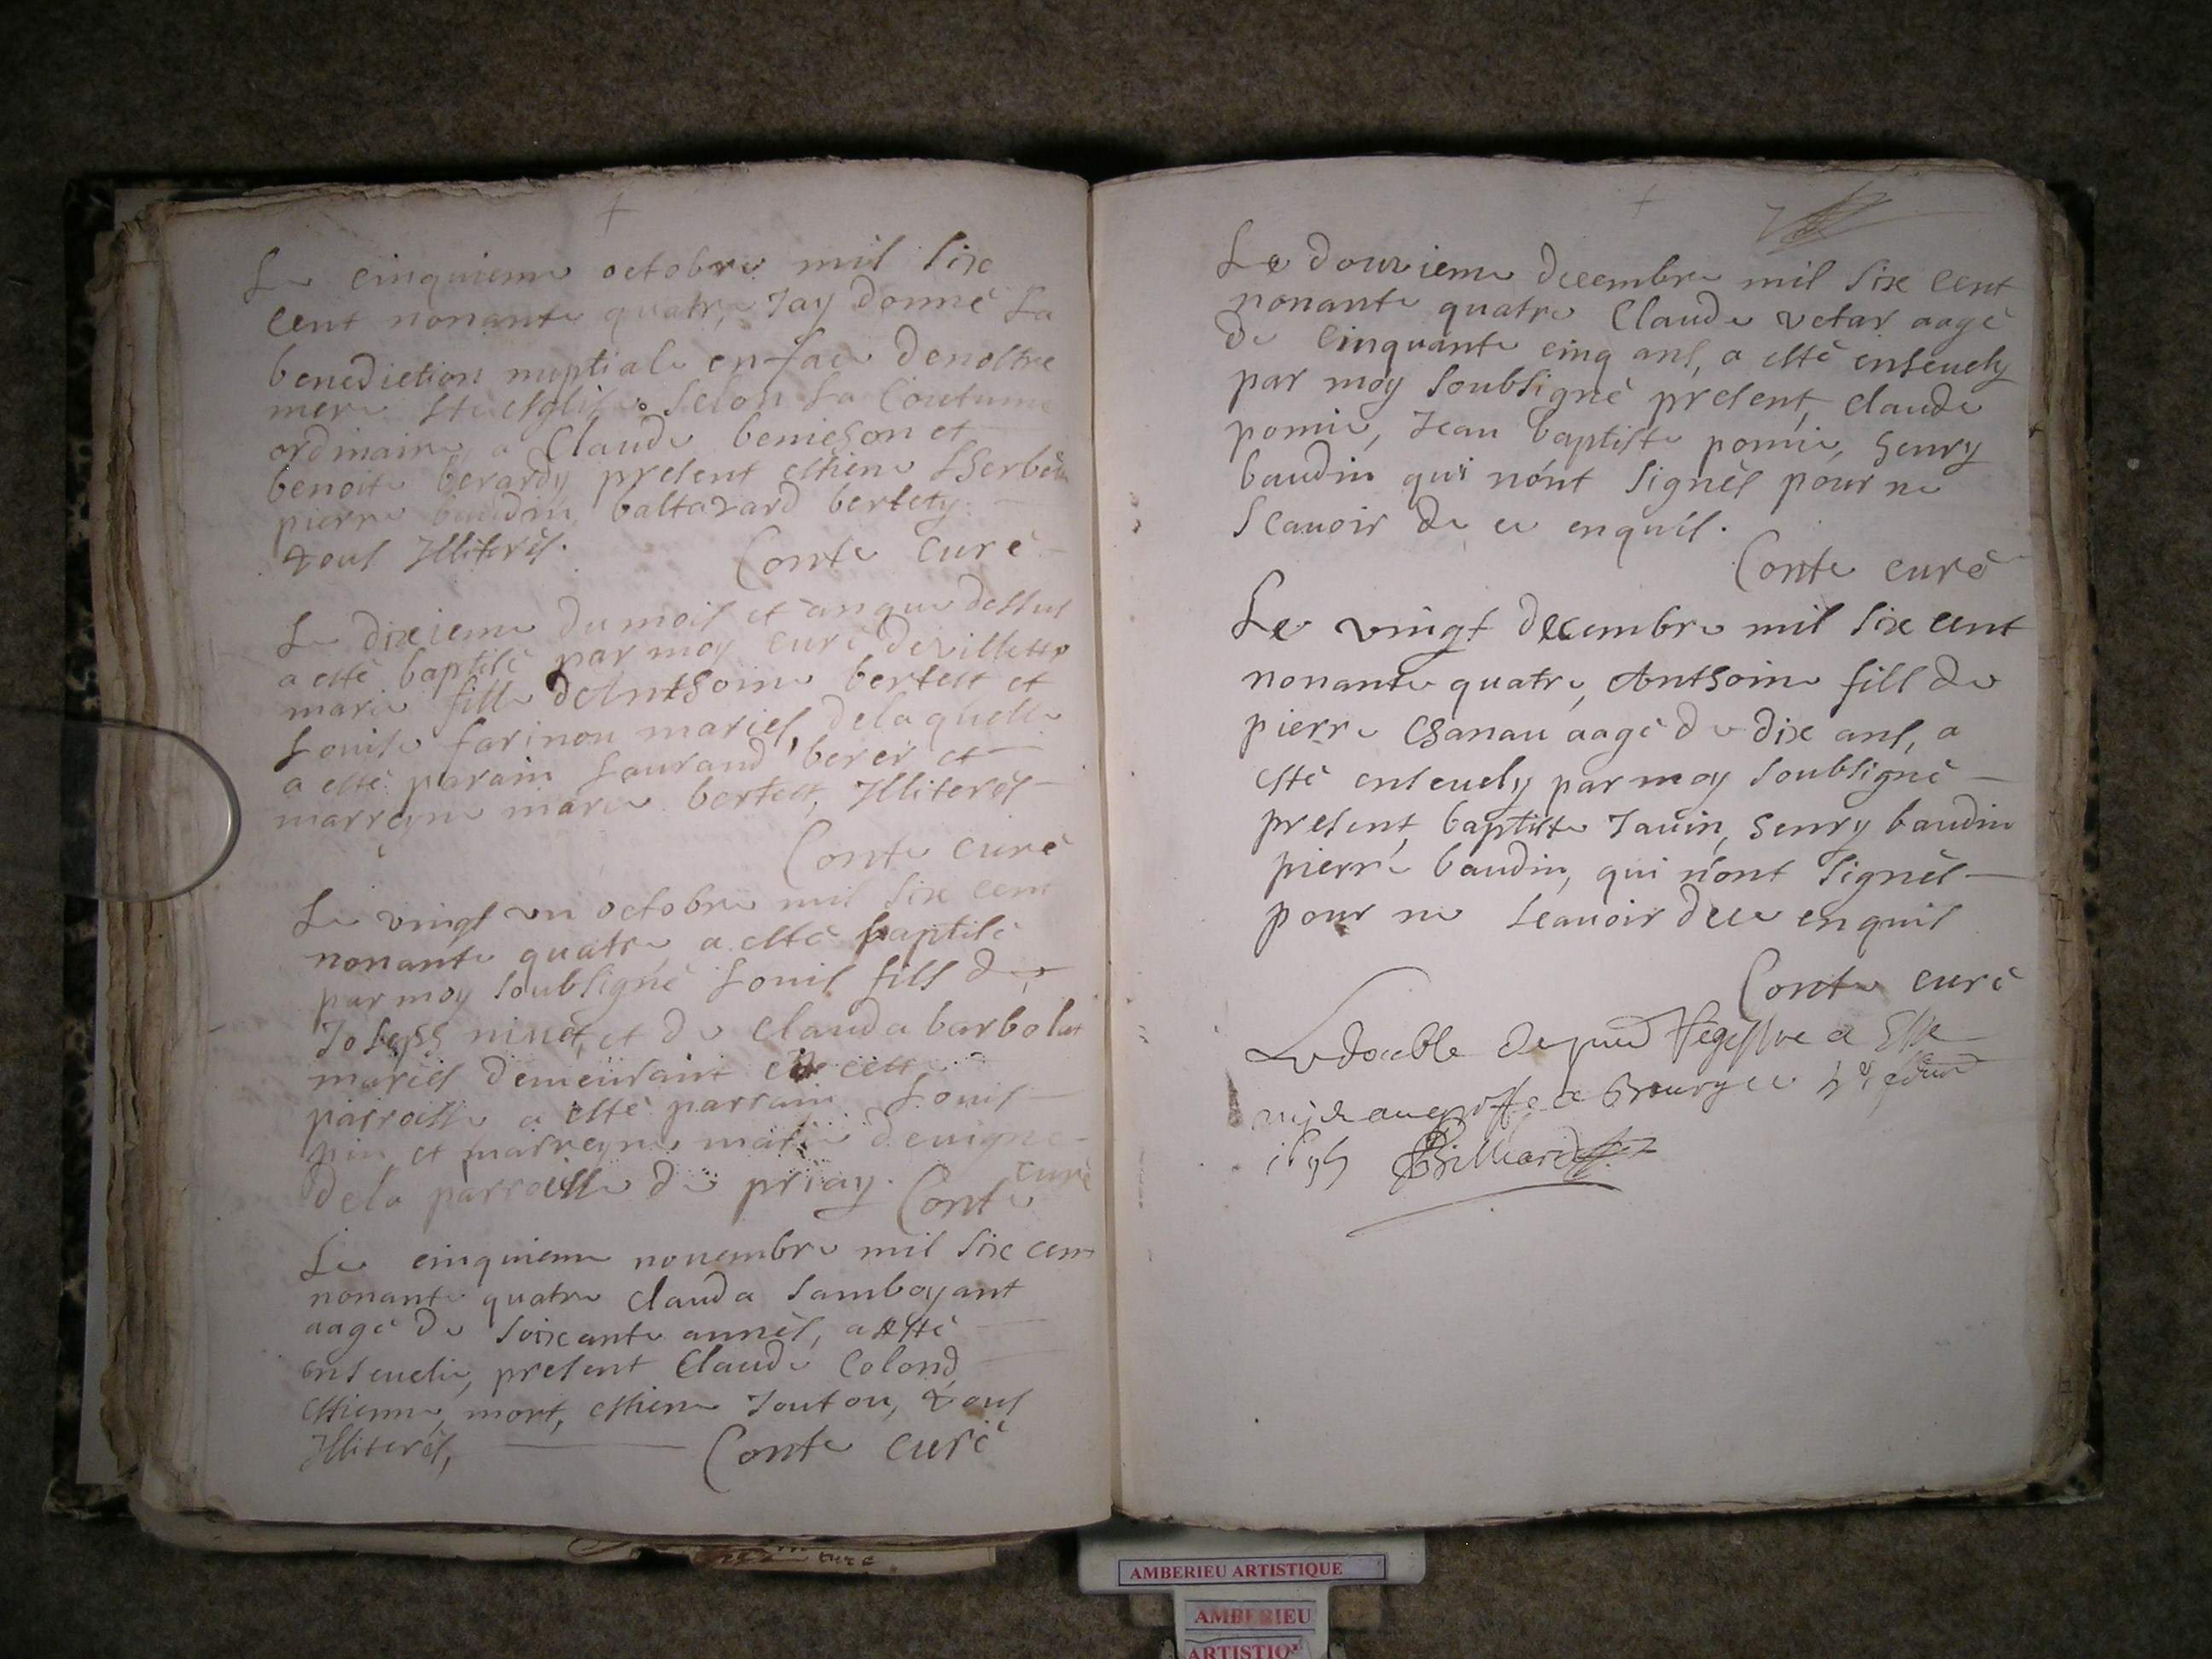 Le cinquieme octobre mil six
cent nonante quatre Jay donné La
benediction nuptiale en face de nostre
mere ste esglise selon La Coutume
ordinaire a Claude benieson et
benoite berardy present estiene
pierre baudin, baltazard bertety
tous Illiterés. Conte Curé
Le dixieme du mois et an que dessus
a esté baptisé par moy curé de villette
marie fille dAnthoine bertest et
Louise farinon mariés, de laquelle
a esté parain Laurand berer et
marreyne marie bertest, Illiterés
Conte curé
Le vingt un octobre mil six cent
nonante quatre, a esté baptisé
par moy soubsigné Louis fils de
Joseph ninet, et de Clauda barbolat
mariés demeurant cette
parroisse a esté parrain Louis
pin et marreyne marie devigne
de la parroisse de priay. Conte curé
Le cinquieme novembre mil six cent
nonante quatre Clauda Jamboyant
aagé de soixante annés, a esté
ensevelie, present Claude Colond,
estienne mort, estiene Joutou, tous
Illiterés, Conte curé
Le douzieme decembre mil six cent
nonante quatre Claude vetar aagé
de Cinquante cinq ans, a esté ensevely
par moy soubsigné present, claude
pomie, Jean baptiste pomie, henry
baudin qui nont signés pour ne
scauoir de ce enquis.
Conte curé
Le vingt decembre mil six cent
nonante quatre, Anthoine fill de
pierre Chanau aagé de dix ans, a
esté ensevely par moy soubsigné
present, baptiste Javin, henry baudin
pierre baudin, qui nont signés
pour ne scauoir de ce enquis
Conte curé
Le double du put Regestre a Este
mis au greffe a Bourg ce
Brilliard
AMBERIEU ARTISTIQUE
AMBERIEU